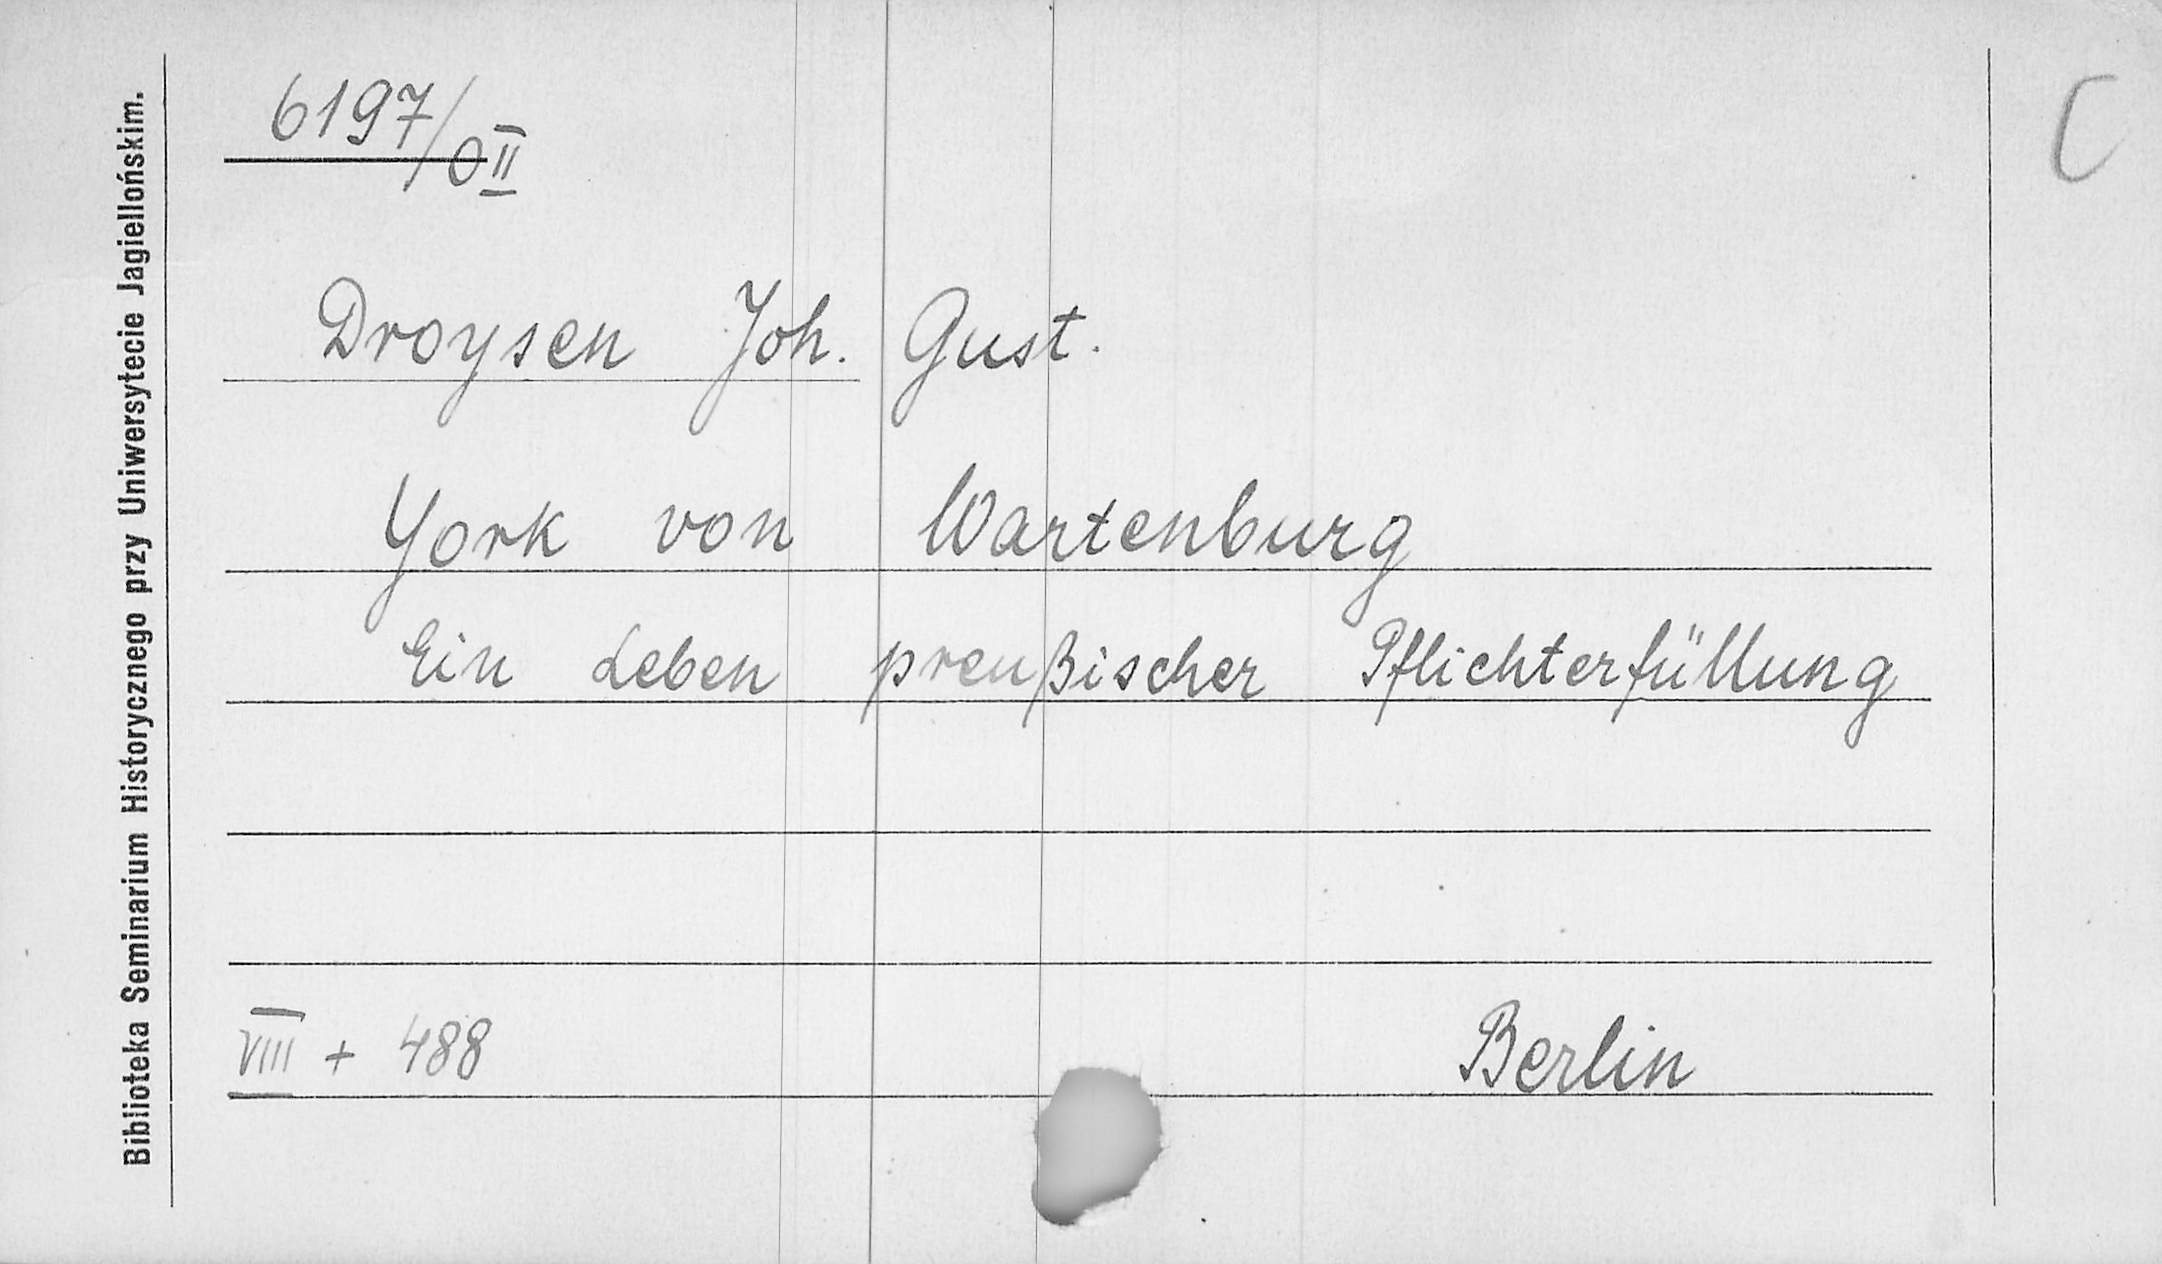 Biblioteka Seminarium Historycznego przy Uniwersytecie Jagiellońskim.
6197/OII
C
Droysen Joh. Gust.
York von Wartenburg
Ein Leben preußischer Pflichterfüllung
VIII + 488
Berlin